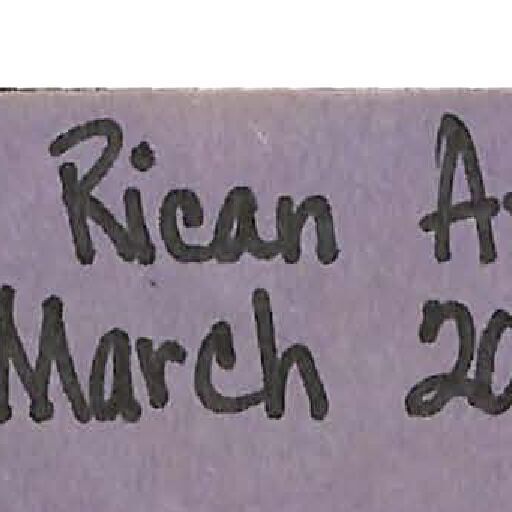 Rican A
March 20